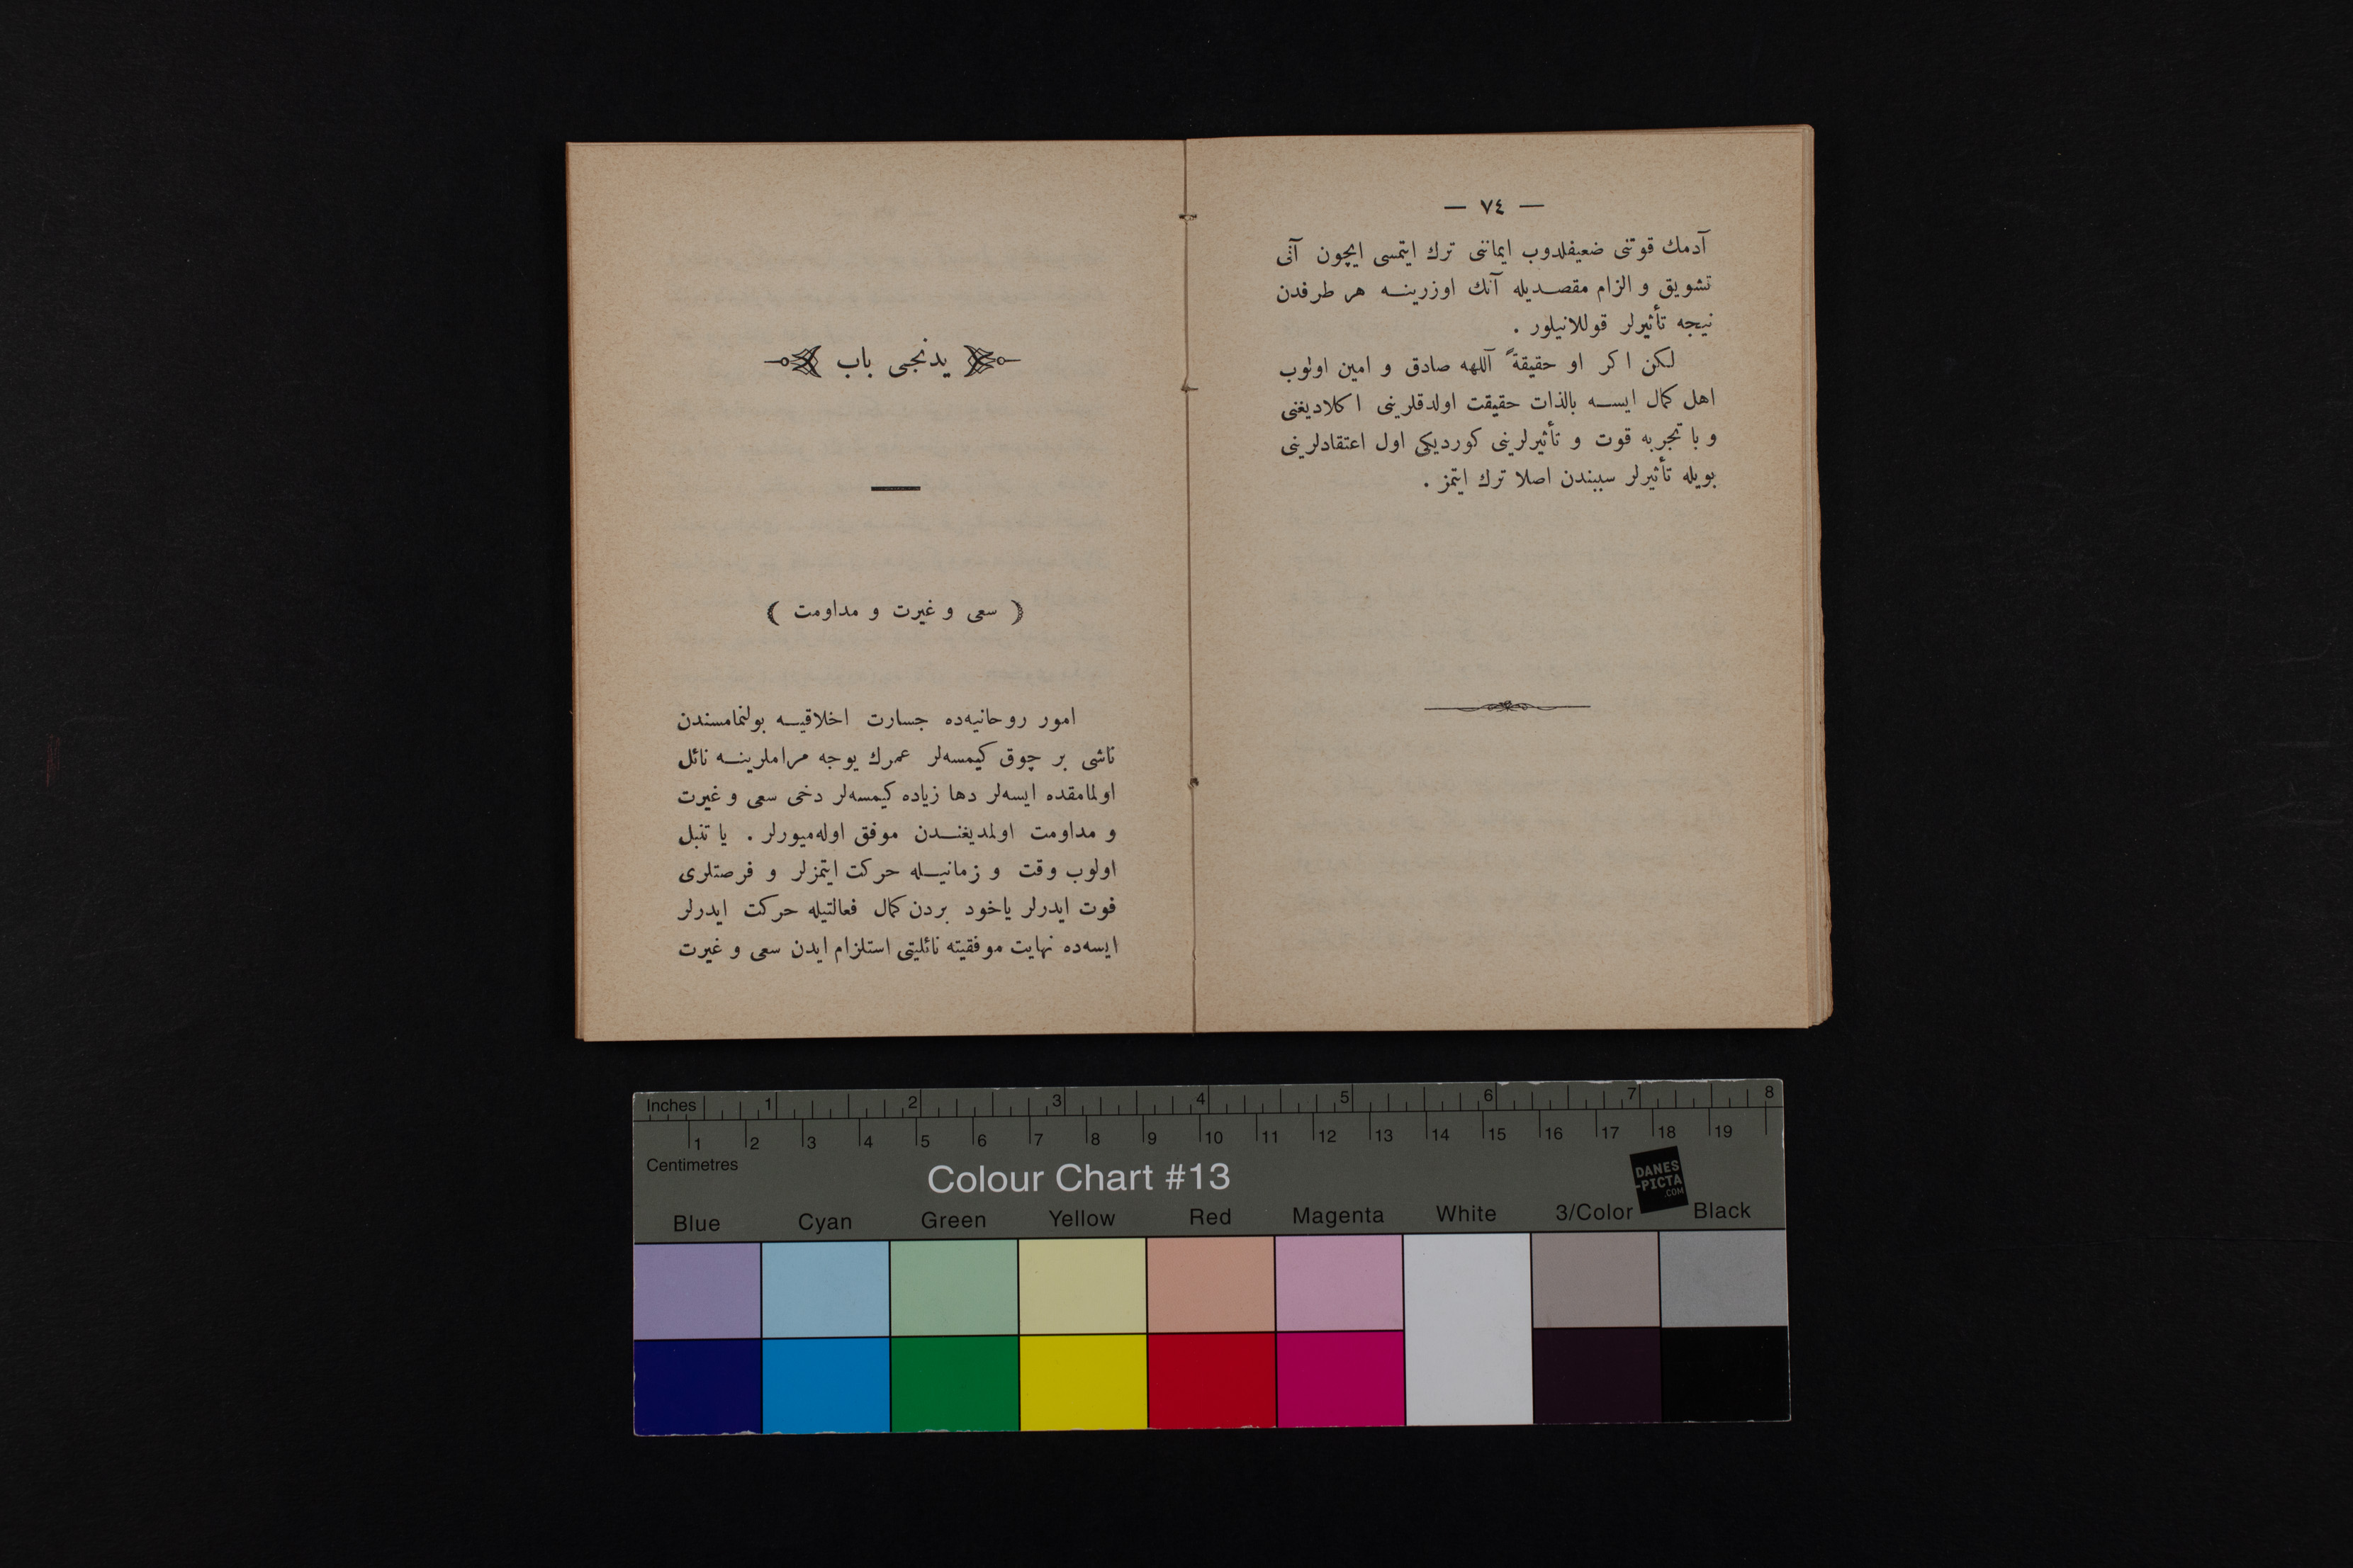 — ٧٤ —
آدمك قوتنى ضعيفلدوب ايماننى ترك ايتمسى ايچون آنى
تشويق و الزام مقصديله آنك اوزرينه هر طرفدن
نيجه تأثيرلر قوللانيلور .
لكن اكر او حقيقةً آللهه صادق و امين اولوب
اهل كمال ايسه بالذات حقيقت اولدقلرينى اكلاديغنى
و با تجربه قوت و تأثيرلرينى كورديكى اول اعتقادلرينى
بويله تأثيرلر سببندن اصلا ترك ايتمز .
يدنجى باب
( سعى و غيرت و مداومت )
امور روحانيه‌ده جسارت اخلاقيه بولنمامسندن
ناشى بر چوق كيمسه‌لر عمرك يوجه مراملرينه نائل
اولمامقده ايسه‌لر دها زياده كيمسه‌لر دخى سعى و غيرت
و مداومت اولمديغندن موفق اوله‌ميورلر . يا تنبل
اولوب وقت و زمانيله حركت ايتمزلر و فرصتلرى
فوت ايدرلر ياخود بردن كمال فعالتيله حركت ايدرلر
ايسه‌ده نهايت موفقيته نائليتى استلزام ايدن سعى و غيرت
Inches 1 2 3 4 5 6 7 8
1 2 3 4 5 6 7 8 9 10 11 12 13 14 15 16 17 18 19
Centimetres
Colour Chart #13
DANES
-PICTA
.COM
Blue Cyan Green Yellow Red Magenta White 3/Color Black